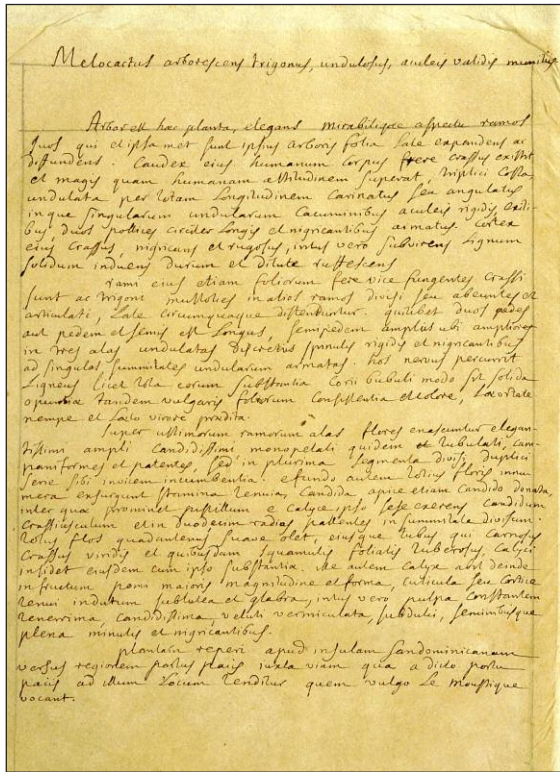 Melocactus arborescens trigonus, undulosus, aculeis validis munitus
Arbor est haec planta, elegans mirabilique aspectu ramos
suos qui et ipsamet sunt ipsius arboris folia late expandens ac
diffundens. Caudex eius humanum corpus fere crassus existit
et magis quam humanam altitudinem superat, triplici costa
undulata per totam longitudinem carinatus seu angulatus
inque singularum undularum cacuminibus aculeis rigidis exili-
bus duos pollices circiter longis et nigricantibus armatus. Cortex
eius crassus, nigricans et rugosus, intus vero subvirens lignum
solidum induens durum et dilute ruffescens
rami eius etiam foliorum fere vice fungentes crassi
sunt ac trigoni multoties in alios ramos divisi seu abeuntes et
articulati, late circumquaque distenduntur. quilibet duos pedes
aut pedem et semis est longus, semipedem amplus ubi ampliores
in tres alas undulatas discretus spinulis rigidis et nigricantibus
ad singulas summitates undularum armatas. hos nervus percurrit
ligneus licet tota eorum substantia corii bubuli modo sit solida
tandem vulgaris foliorum consistentia et colore, laxoritate
nempe et laeto virore praedita.
super ultimorum ramorum alas flores enascuntur elegan-
tissimi ampli candidissimi, monopetali quidem et tubulati, cam-
paniformes et patentes, sed in plurima segmenta divisi, duplici
serie sibi invicem incumbentia. e fundo autem totius floris innu-
mera exsurgunt stamina tenuia, candida, apice etiam candido donata
inter quae prominet pistillum e calyce ipso sese exerens candidum
crassiusculum et in duodecim radios patentes in summitate divisum.
totus flos quadantenus suave olet, eiusque tubus qui carnosus
crassus viridis et quibusdam squamulis foliatis tuberosus, calyci
insidet eiusdem cum ipso substantia. ille autem calyx abit deinde
in fructum pomi maioris magnitudine et forma, cuticula seu cortice
tenui indutum subluteo et glabra, intus vero pulpa constantem
tenerrima, candidissima, veluti vermiculata, subdulci, seminibusque
plena minutis et nigricantibus.
plantam reperi apud insulam Sandominicanam
versus regionem portus pacis iuxta viam qua a dicto portu
pacis ad illum locum tenditur quem vulgo le Moustique
vocant.